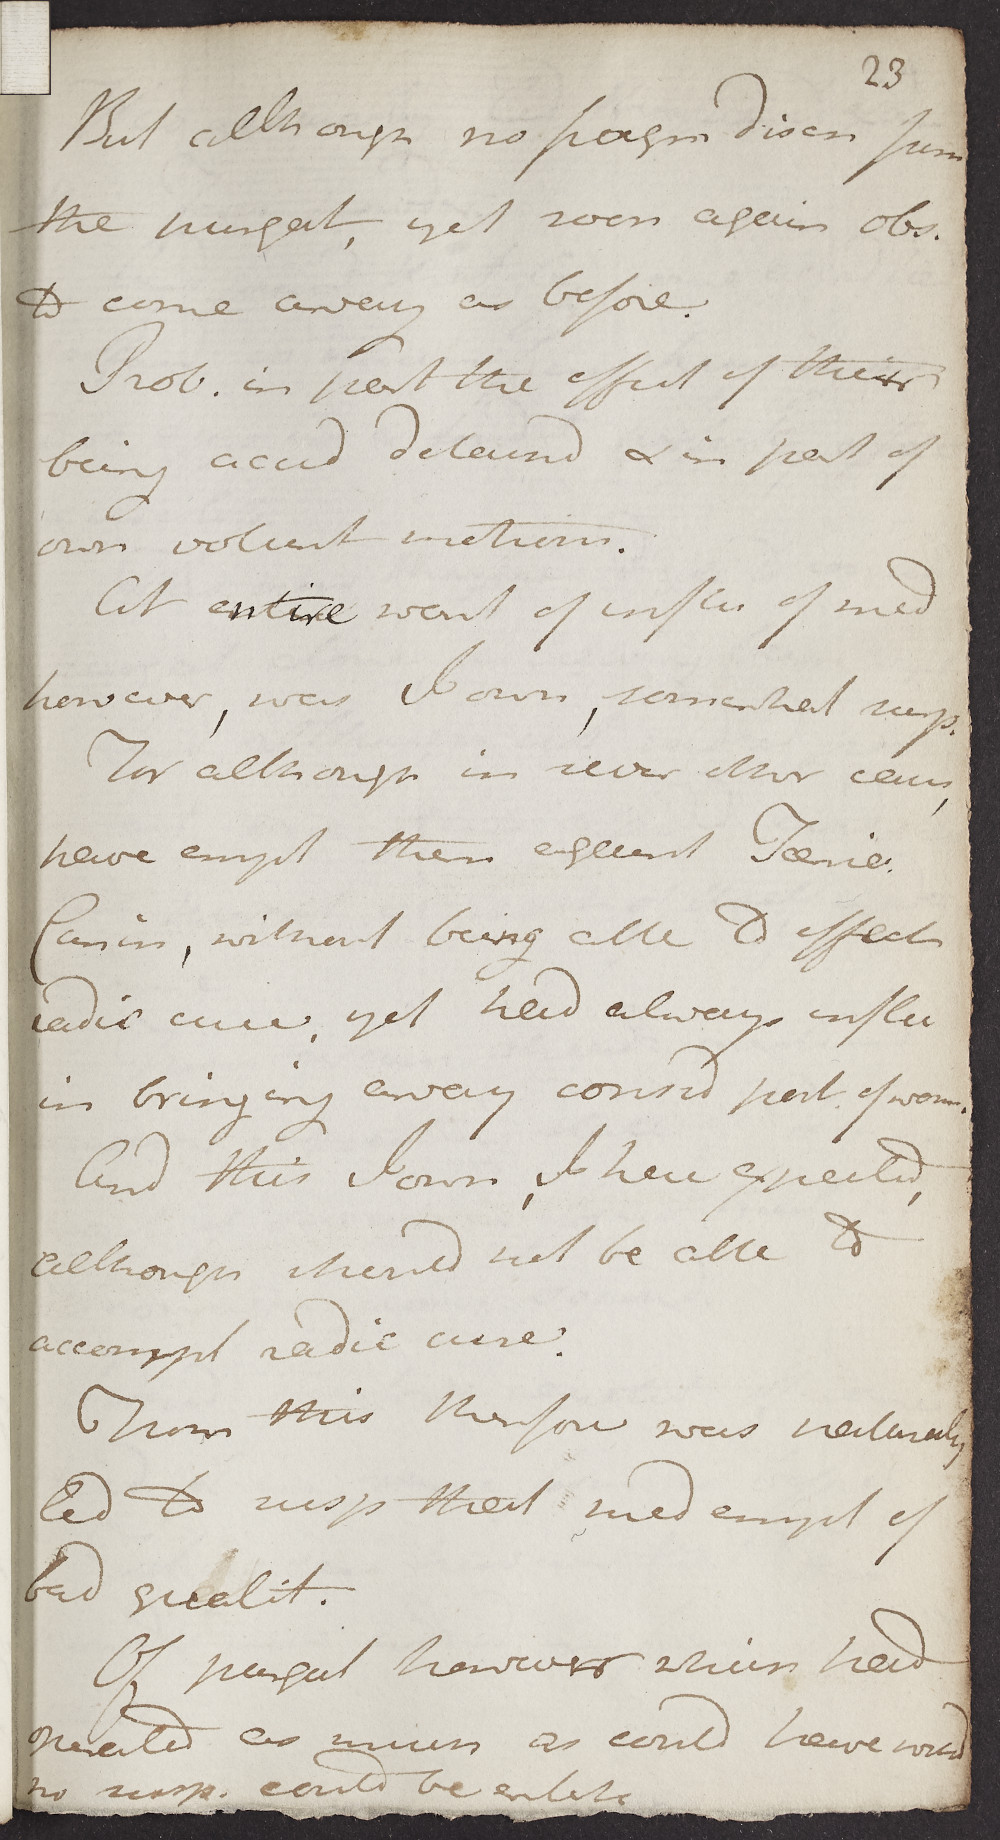 23
But although no fragm discn from
the purgat, yet soon again obs.
to come away as before.
Prob. in part the effect of their
being accd detaind & in part of
own volunt motion.
At entire want of influ of med
however, was I own, somewhat surp.
For although in sever other cases,
have empl them against Taenia
Canin, without being able to effect
radic cure, yet had always influ
in bringing away consid part of worm.
And this I own, I here expected,
although should not be able to
accompl radic cure.
From this therefore was naturaly
led to susp that med empl of
bad qualit.
Of purgat however which had
operated as much as could have wishd
no susp. could be entert